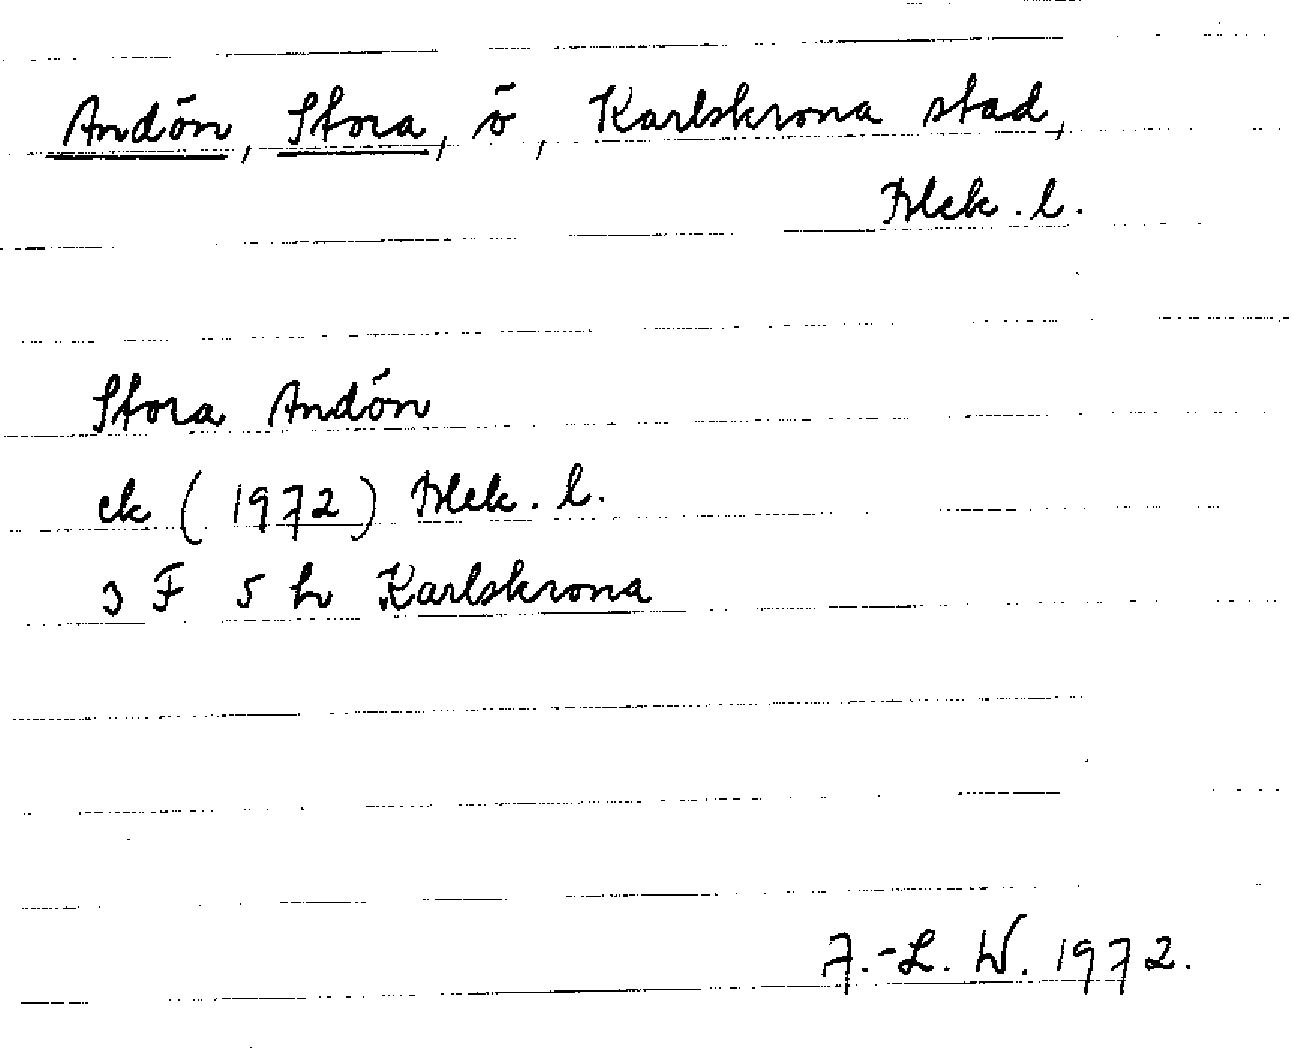 Andön, Stora, ö, Karlskrona stad,
Blek. l.
Stora Andön
ek (1972) Blek. l.
3 F 5 h Karlskrona
A.-L. W. 1972.